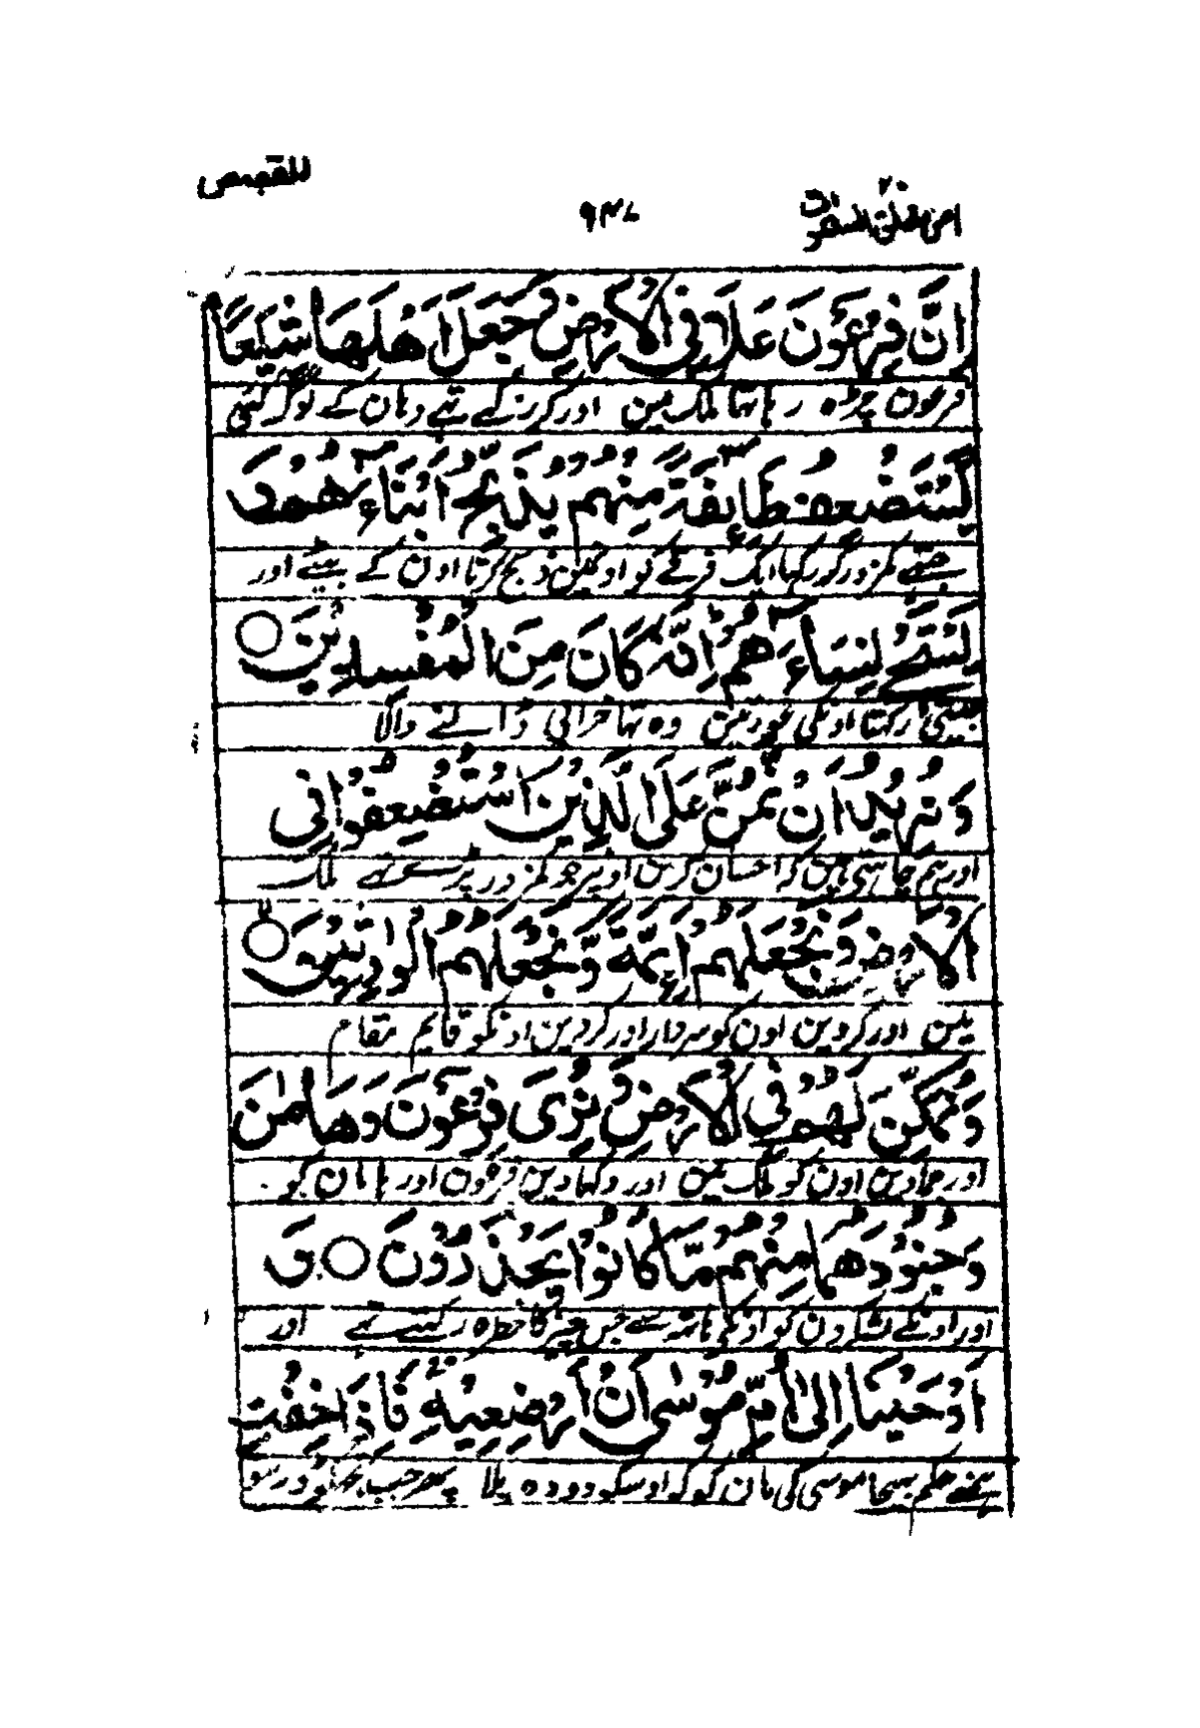 القصص
٩٣٨
امن خلق السموات ٢٠
اِنَّ فِرْعَوْنَ عَلَا فِى الْاَرْضِ وَجَعَلَ اَهْلَهَا شِيَعًا
فرعون چڑہ رہا تہا ملک مین اور کر رکے تہے وہان کے لوگ کئی
يَّسْتَضْعِفُ طَآىِٕفَةً مِّنْهُمْ يُذَبِّحُ اَبْنَآءَهُمْ وَ
جتہے کمزور کر رکہا ایک فرقے کو اونمین ذبح کرتا اون کے بیٹے اور
يَسْتَحْيٖ نِسَآءَهُمْ اِنَّهٗ كَانَ مِنَ الْمُفْسِدِيْنَ ○
جیتی رکہتا اونکی عورتین وہ تہا خرابی ڈالنے والا
وَنُرِيْدُ اَنْ نَّمُنَّ عَلَى الَّذِيْنَ اسْتُضْعِفُوْا فِى
اور ہم چاہتی ہین کہ احسان کرین اونپر جو کمزور پڑے تہے ملک
الْاَرْضِ وَنَجْعَلَهُمْ اَىِٕمَّةً وَّنَجْعَلَهُمُ الْوٰرِثِيْنَ ○
مین اور کر دین اون کو سردار اور کر دین اونکو قایم مقام
وَنُمَكِّنَ لَهُمْ فِى الْاَرْضِ وَنُرِىَ فِرْعَوْنَ وَهَامٰنَ
اور جمادین اون کو ملک مین اور دکہادین فرعون اور ہامان کو
وَجُنُوْدَهُمَا مِنْهُمْ مَّا كَانُوْا يَحْذَرُوْنَ ○ وَ
اور اونکے لشکرون کو اونکے ہاتہ سے جس چیز کا خطرہ رکہتے تہے اور
اَوْحَيْنَا اِلٰى اُمِّ مُوْسٰى اَنْ اَرْضِعِيْهِ فَاِذَا خِفْتِ
ہمنے حکم بہیجا موسی کی مان کو کہ اوسکو دودہ پلا پہر جب